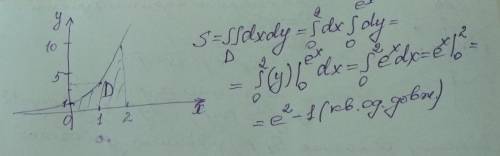 y
10
5
1
D
0
1
2
x
S = ∬ dxdy = ∫₀² dx ∫₀^{eˣ} dy =
D
= ∫₀² (y) |₀^{eˣ} dx = ∫₀² eˣ dx = eˣ |₀² =
= e² - 1 (кв. од. довж.)